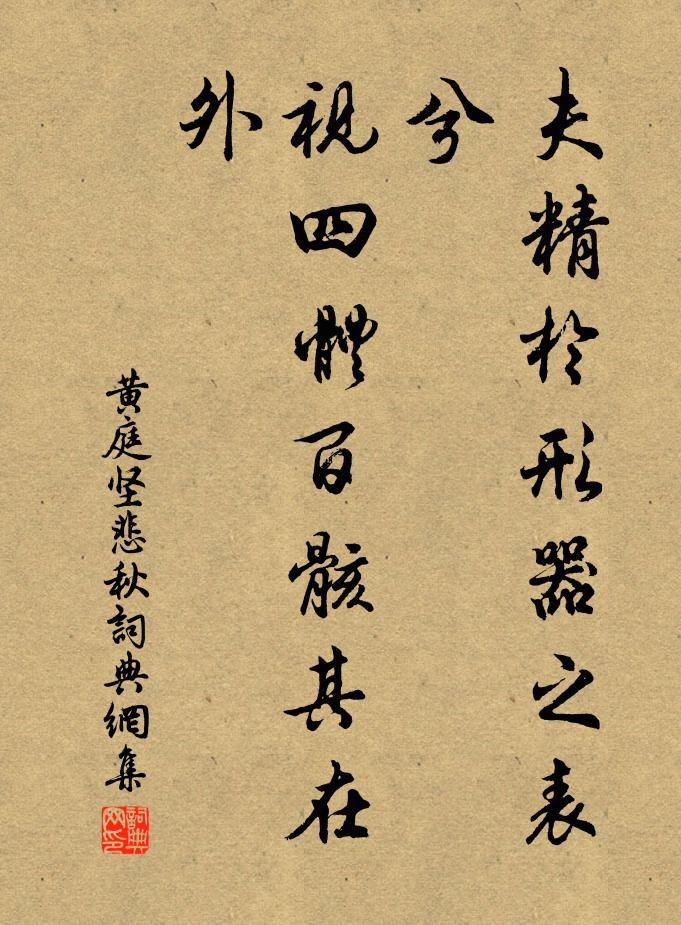 夫精於形器之表
兮
視四體百骸其在
外
黄庭坚悲秋詞典網集
詞典网印